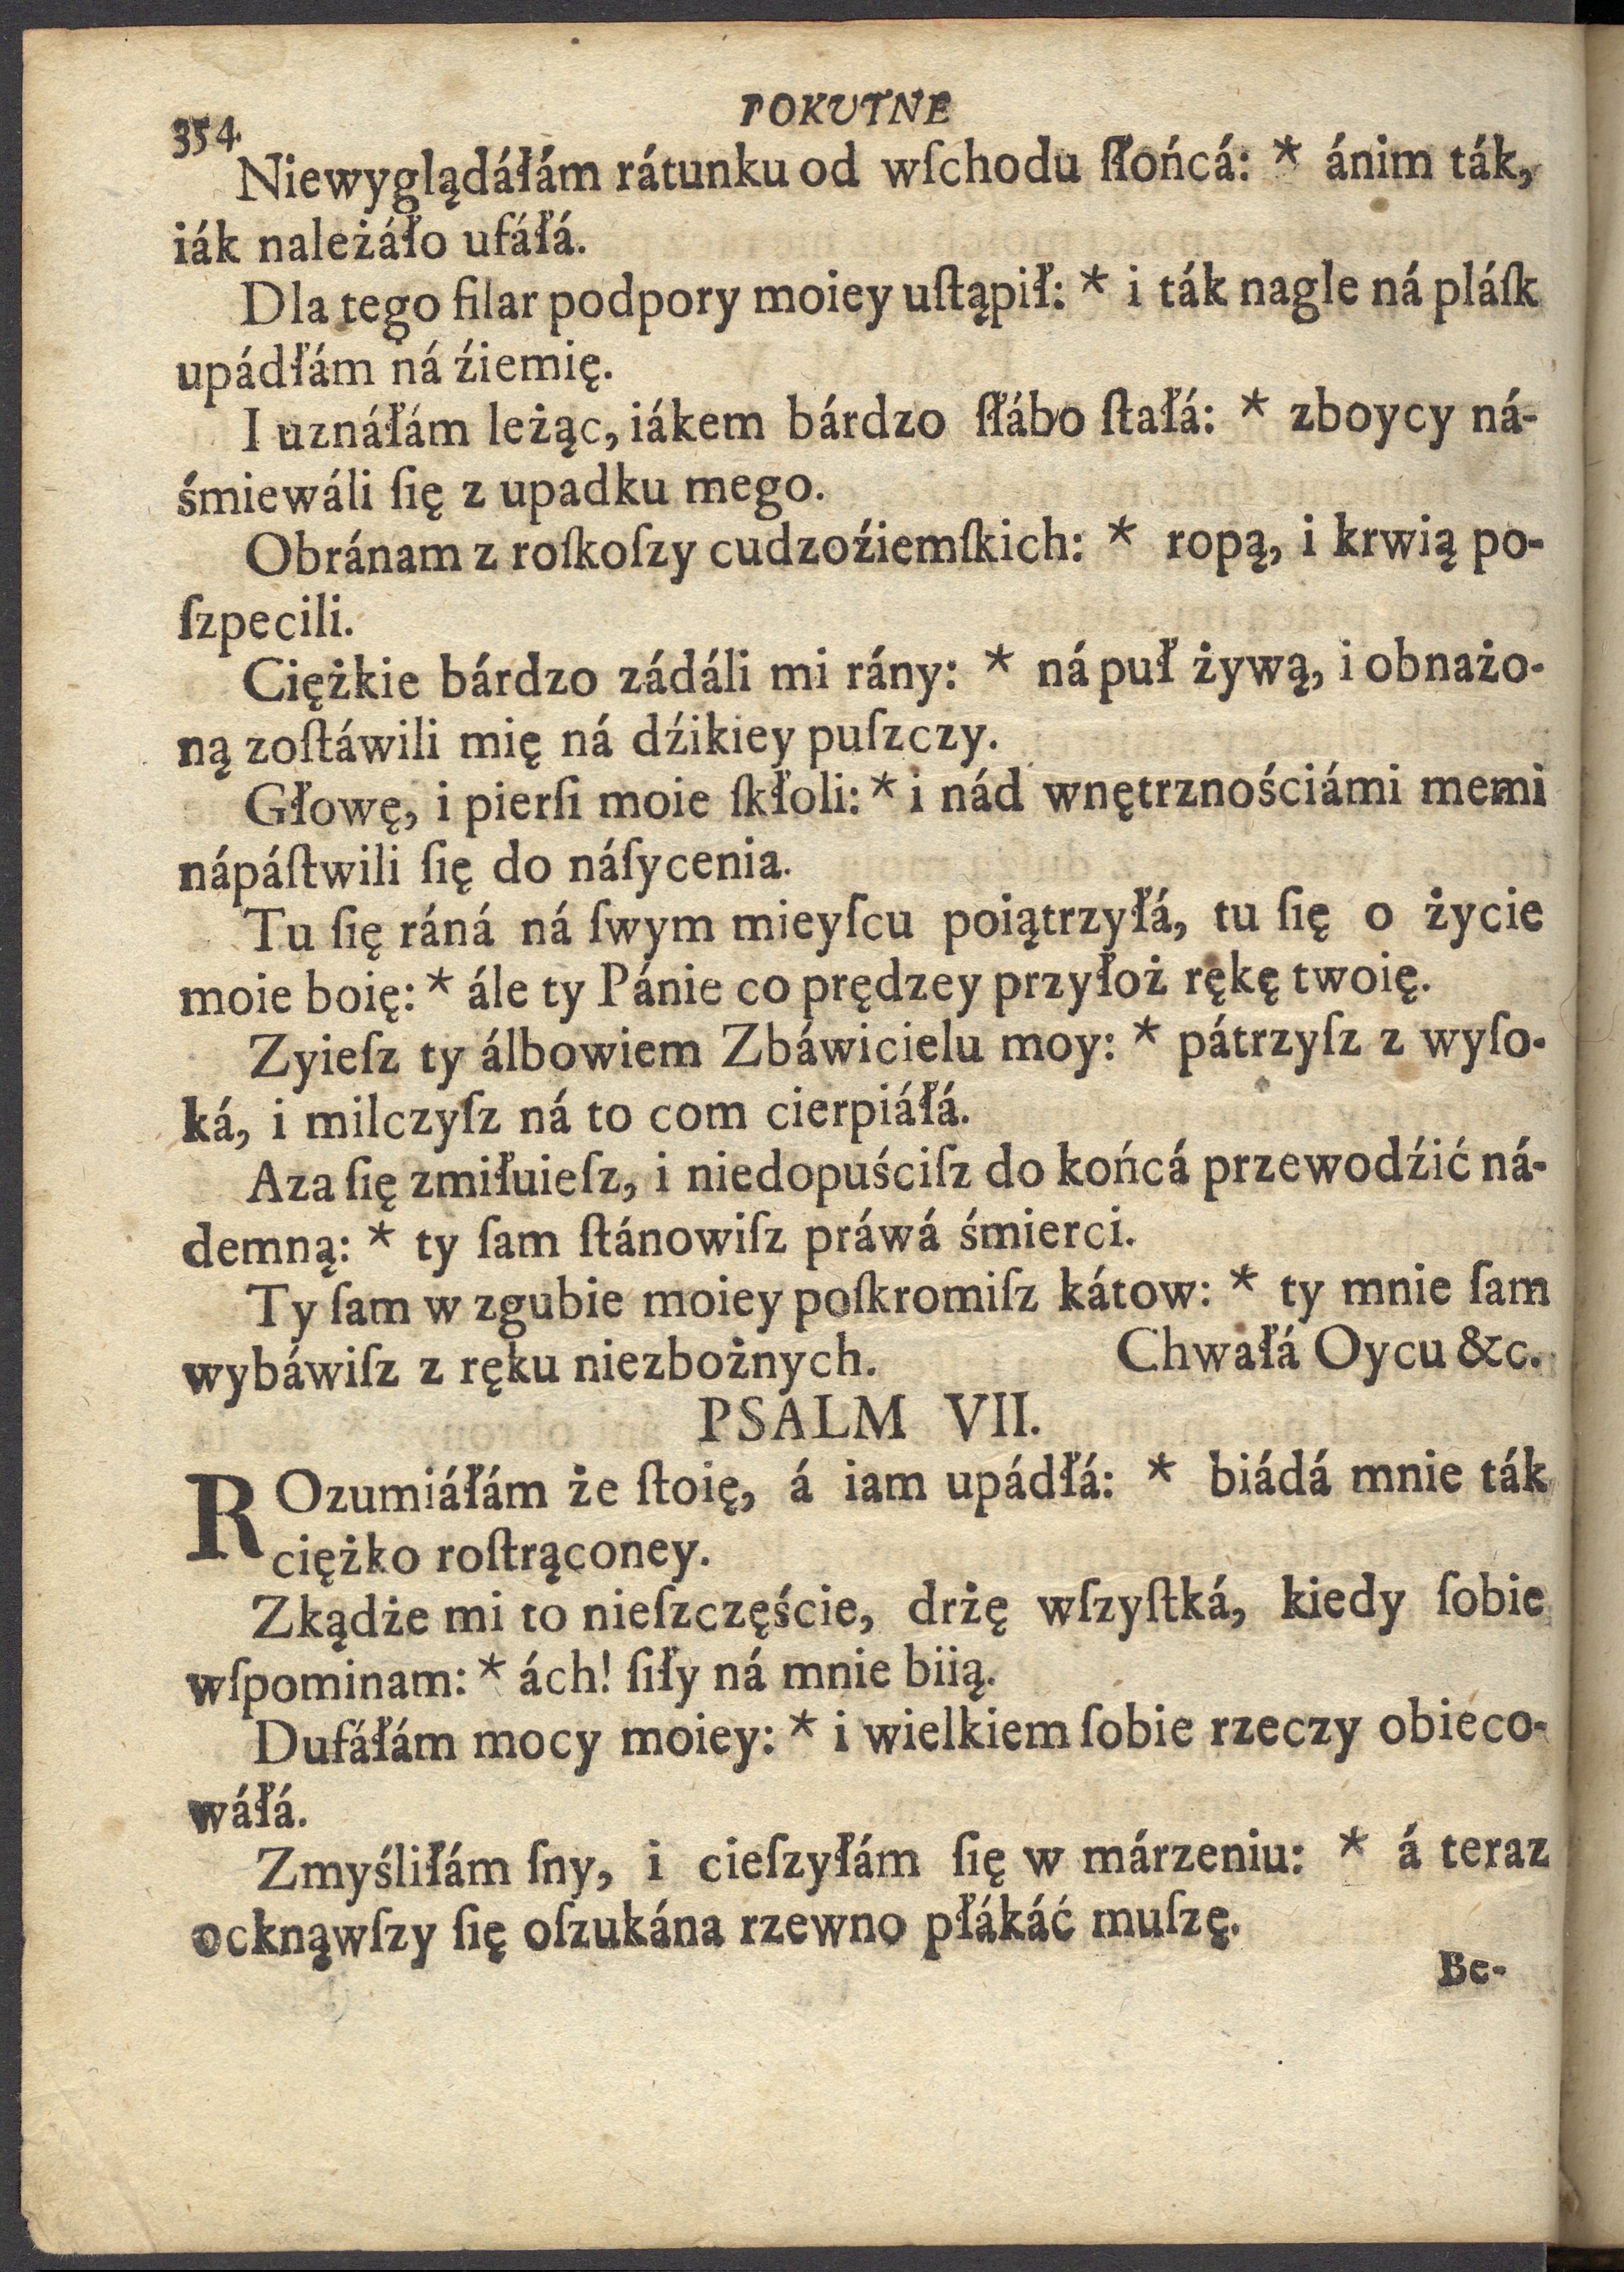 354
POKUTNE
Niewyglądáłám rátunku od wſchodu ſłońcá: * ánim ták,
iák należáło ufáłá.
Dla tego filar podpory moiey uſtąpił: * i ták nagle ná pláſk
upádłám ná źiemię.
I uznáłám leżąc, iákem bárdzo ſłábo ſtałá: * zboycy ná-
śmiewáli ſię z upadku mego.
Obránam z roſkoſzy cudzoźiemſkich: * ropą, i krwią po-
ſzpecili.
Ciężkie bárdzo zádáli mi rány: * ná puł żywą, i obnażo-
ną zoſtáwili mię ná dźikiey puſzczy.
Głowę, i pierſi moie ſkłoli: * i nád wnętrznościámi memi
nápáſtwili ſię do náſycenia.
Tu ſię ráná ná ſwym mieyſcu poiątrzyłá, tu ſię o życie
moie boię: * ále ty Pánie co prędzey przyłoż rękę twoię.
Zyieſz ty álbowiem Zbáwicielu moy: * pátrzyſz z wyſo-
ká, i milczyſz ná to com cierpiáłá.
Aza ſię zmiłuieſz, i niedopuściſz do końcá przewodźić ná-
demną: * ty ſam ſtánowiſz práwá śmierci.
Ty ſam w zgubie moiey poſkromiſz kátow: * ty mnie ſam
wybáwiſz z ręku niezbożnych. Chwałá Oycu &c.
PSALM VII.
ROzumiáłám że ſtoię, á iam upádłá: * biádá mnie ták
ciężko roſtrąconey.
Zkądże mi to nieſzczęście, drżę wſzyſtká, kiedy ſobie
wſpominam: * ách! ſiły ná mnie biią.
Dufáłám mocy moiey: * i wielkiem ſobie rzeczy obieco-
wáłá.
Zmyśliłám ſny, i cieſzyłám ſię w márzeniu: * á teraz
ocknąwſzy ſię oſzukána rzewno płákáć muſzę.
Be-